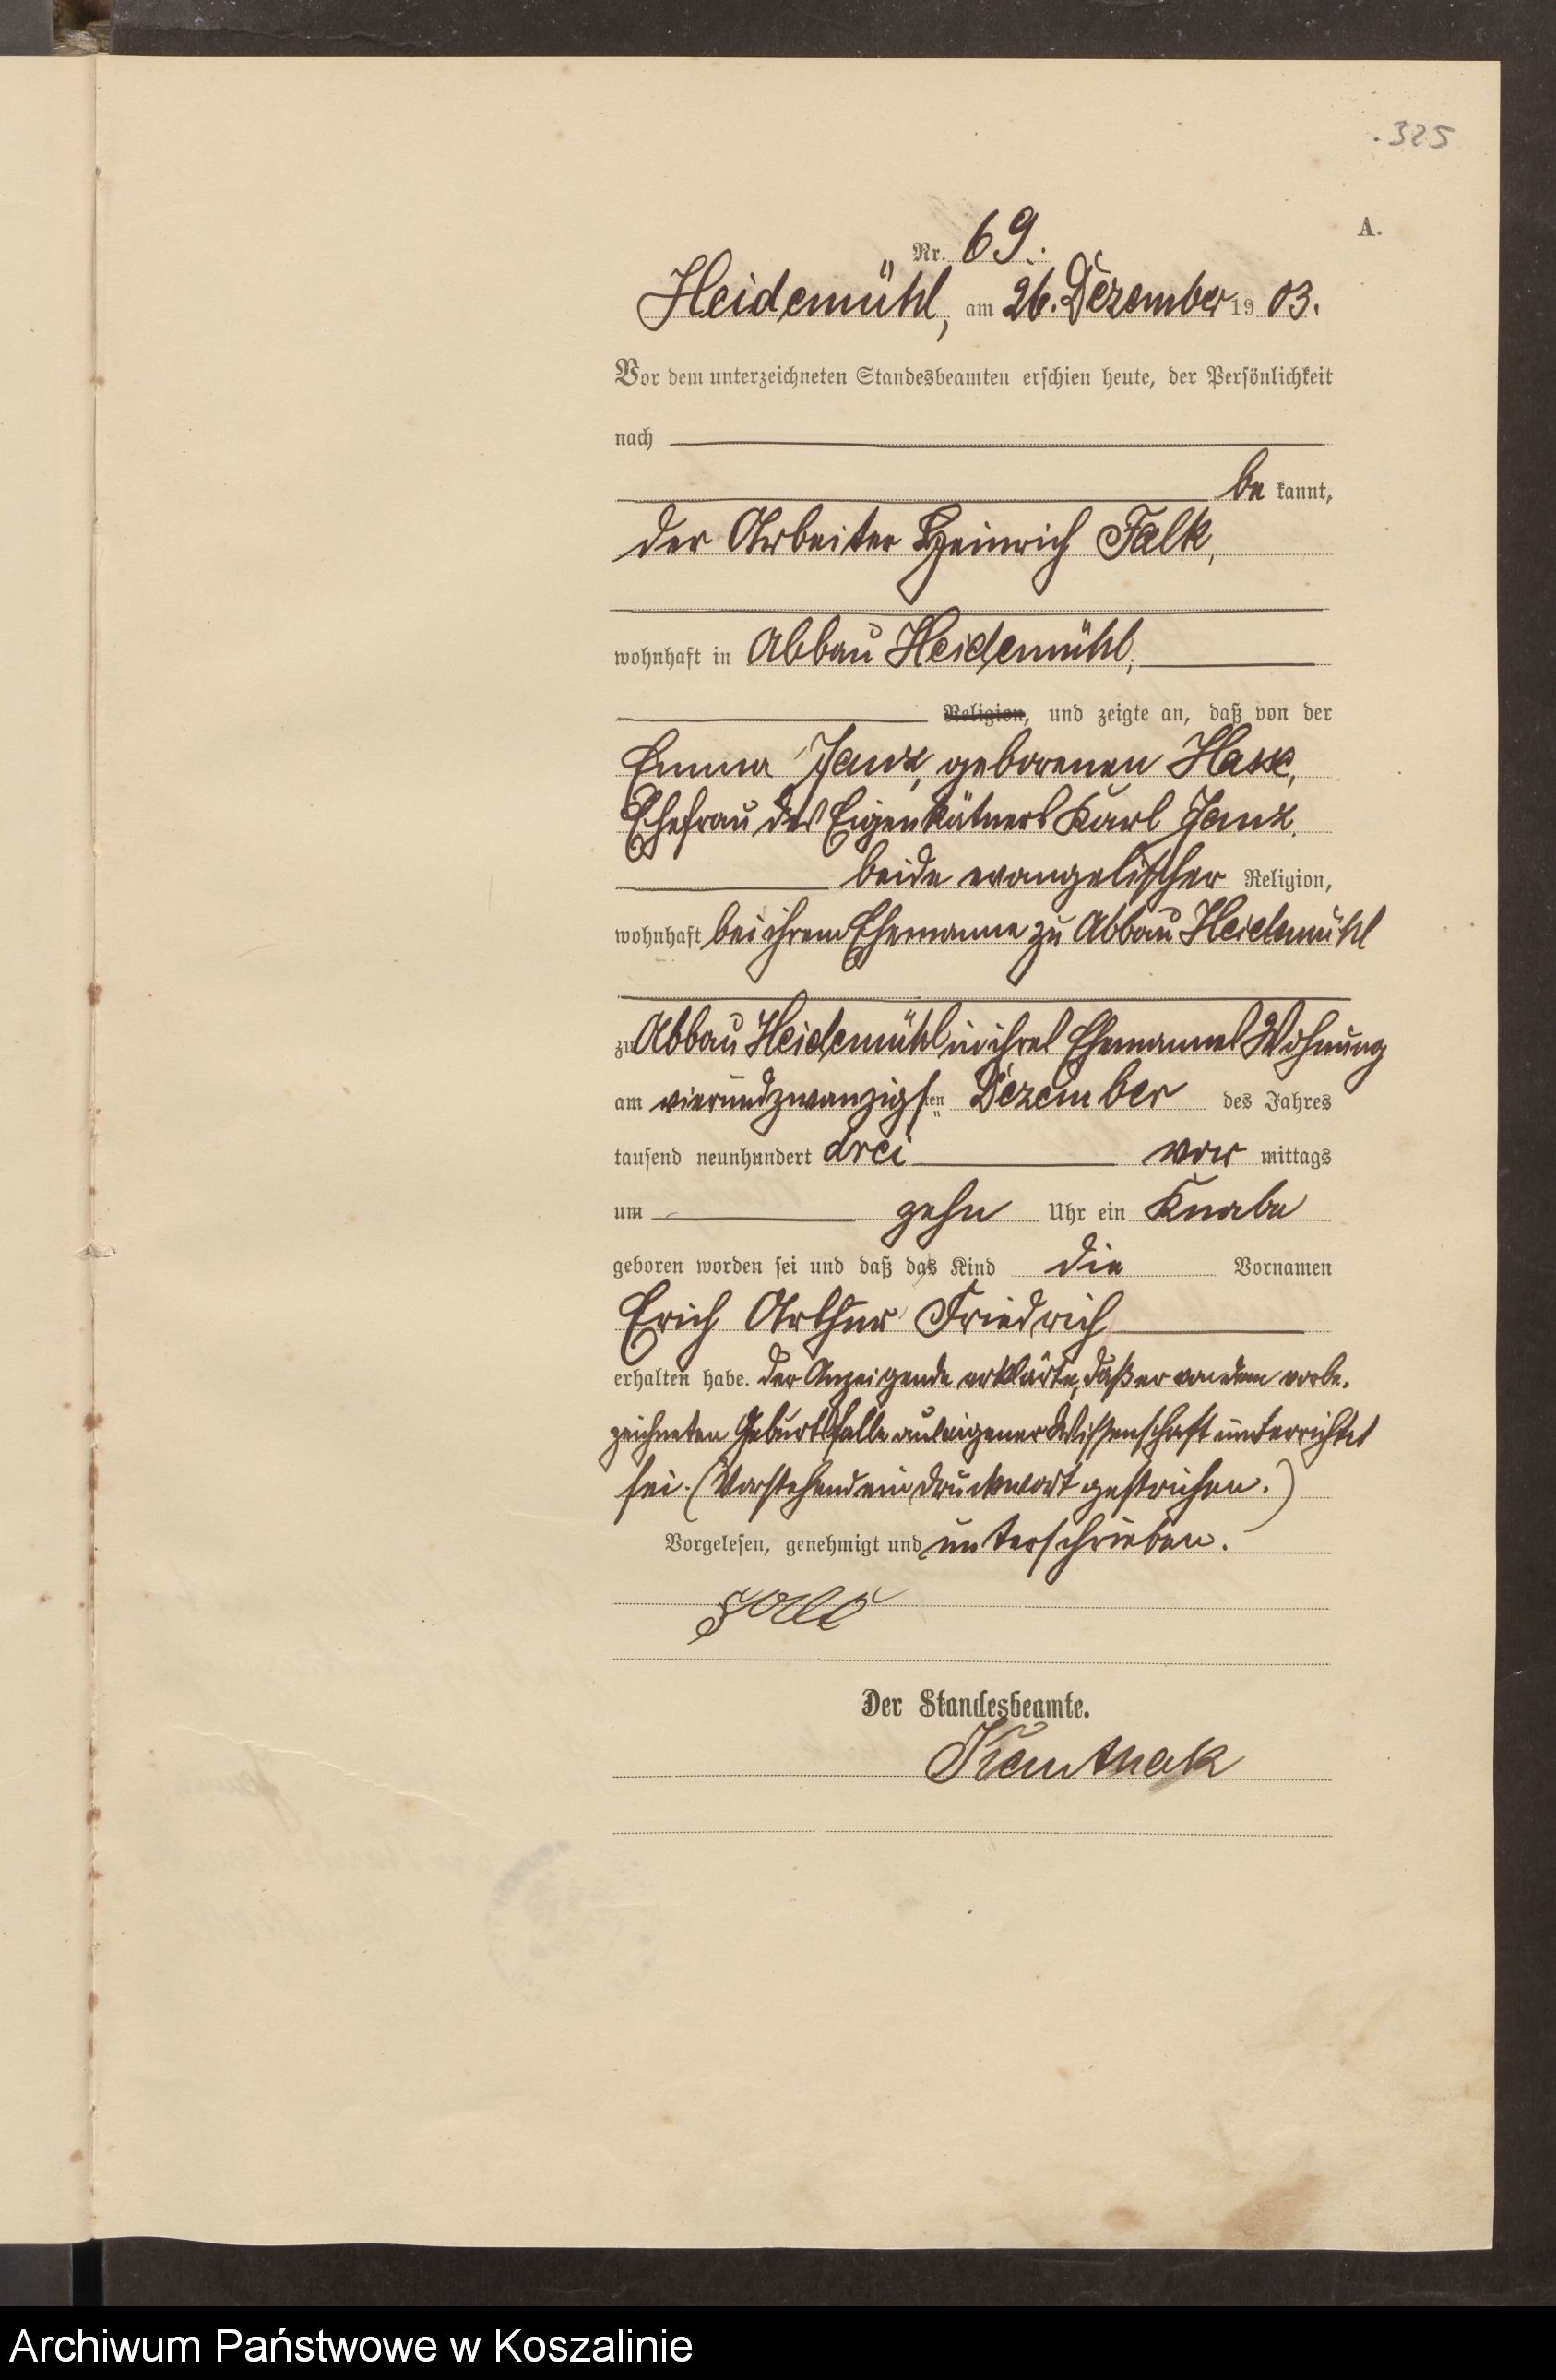 325
A.
Nr. 69.
Heidemühl, am 26. Dezember 1903.
Vor dem unterzeichneten Standesbeamten erschien heute, der Persönlichkeit
nach
be kannt,
der Arbeiter Heinrich Falk,
wohnhaft in Abbau Heidemühl,
Religion, und zeigte an, daß von der
Emma Janz, geborenen Hasse,
Ehefrau des Eigenkätners Karl Janz,
beide evangelischer Religion,
wohnhaft bei ihrem Ehemanne zu Abbau Heidemühl
zu Abbau Heidemühl in ihres Ehemannes Wohnung
am vierundzwanzigsten Dezember des Jahres
tausend neunhundert drei vor mittags
um zehn Uhr ein Knabe
geboren worden sei und daß das Kind die Vornamen
Erich Arthur Friedrich
erhalten habe. Der Anzeigende erklärte, daß er von dem vorbe-
zeichneten Geburtsfalle aus eigener Wissenschaft unterrichtet
sei. (Vorstehend ein Druckwort gestrichen.)
Vorgelesen, genehmigt und unterschrieben.
Der Standesbeamte.
Archiwum Państwowe w Koszalinie